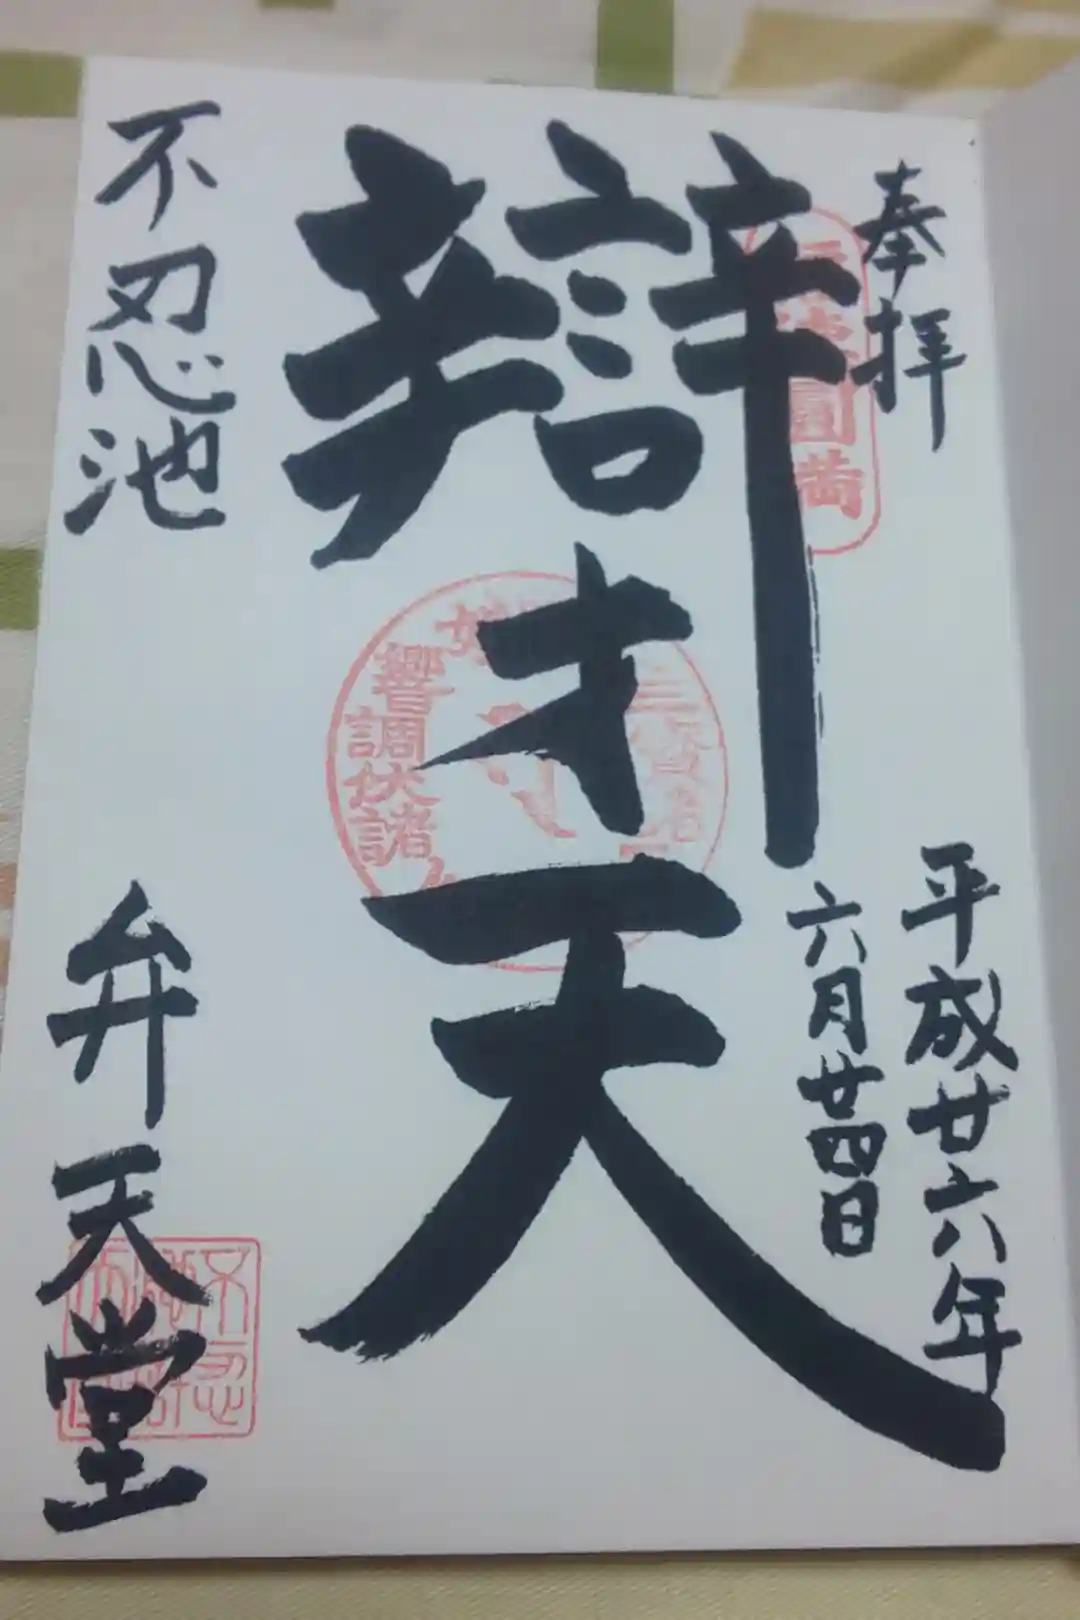 奉拝
平成廿六年
六月廿四日
辯才天
不忍池
弁天堂
圓満
響調伏諸